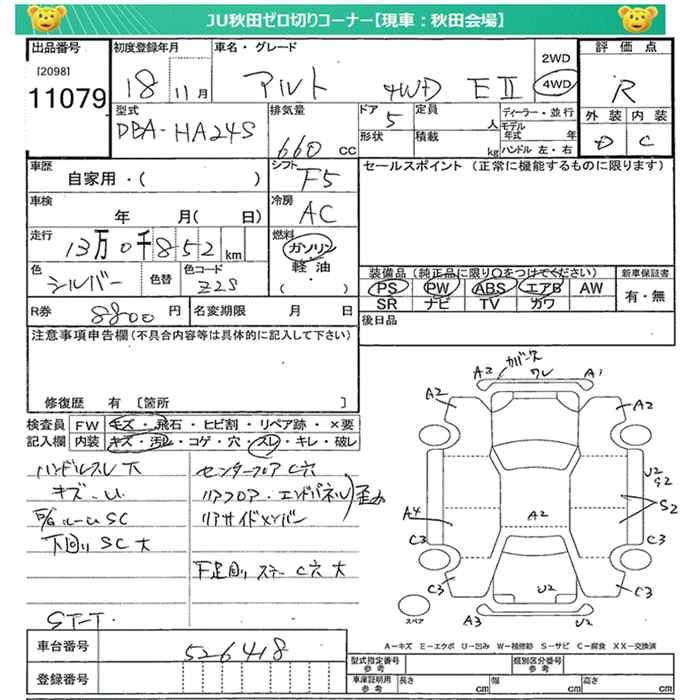 JU秋田ゼロ切りコーナー【現車：秋田会場】
出品番号
[2098]
11079
初度登録年月
18 11月
車名・グレード
アルト 4WD EⅡ
2WD
4WD
評価点
R
外装 内装
D C
型式
DBA-HA24S
排気量
660 cc
ドア
5
形状
定員
人
積載
kg
ディーラー・並行
モデル年式 年
ハンドル 左・右
車歴
自家用・( )
シフト
F5
セールスポイント (正常に機能するものに限ります)
車検
年 月( 日)
冷房
AC
走行
13万0千852km
燃料
ガソリン
軽油
( ・ )
色
シルバー
色替
色コード
Z2S
装備品(純正品に限り○をつけてください)
PS PW ABS エアB AW
SR ナビ TV カワ
新車保証書
有・無
R券
8800円
名変期限 月 日
後日品
注意事項申告欄(不具合内容等は具体的に記入して下さい)
修復歴 有 [箇所 ]
検査員記入欄
FW キズ・飛石・ヒビ割・リペア跡・×要
内装 キズ・汚レ・コゲ・穴・スレ・キレ・破レ
ハンドルスレ大
キズ・U
ルームSC
下回りSC大
センターフロアC穴
リアフロア・エンドパネル
リアサイドメンバー
歪み
下足廻りステーC穴大
ST-T.
カバー欠
A2 ワレ A1
A2 A2
U2
S2
S2
A4 A2
C3 C3
C3 U2 C3
A3 U2
スペア
A－キズ E－エクボ U－凹み W－補修跡 S－サビ C－腐食 XX－交換済
車台番号
526418
登録番号
型式指定番号
参考
類別区分番号
参考
車庫証明用
参考
長さ cm
幅 cm
高さ cm